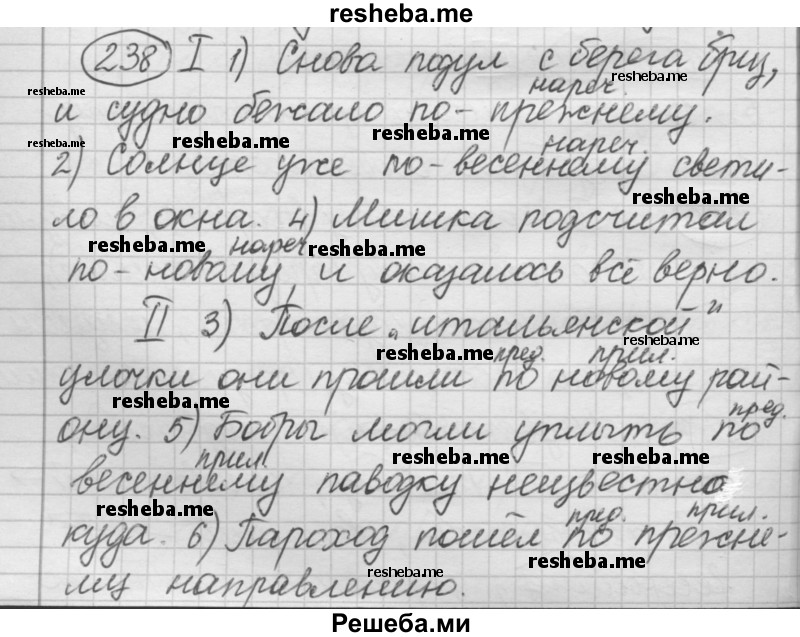 resheba.me
238 I 1) Снова подул с берега бриз,
resheba.me нареч. resheba.me
и судно бежало по-прежнему.
resheba.me resheba.me resheba.me нареч.
2) Солнце уже по-весеннему свети-
resheba.me
ло в окна. 4) Мишка подсчитал
resheba.me нареч. resheba.me
по-новому, и оказалось всё верно.
II 3) После „итальянской"
resheba.me пред. прил. resheba.me
улочки они прошли по новому рай-
resheba.me пред.
ону. 5) Бобры могли уплыть по
прил. resheba.me resheba.me
весеннему паводку неизвестно
resheba.me пред. прил.
куда. 6) Пароход пошёл по прежне-
resheba.me resheba.me
му направлению.
Решеба.ми